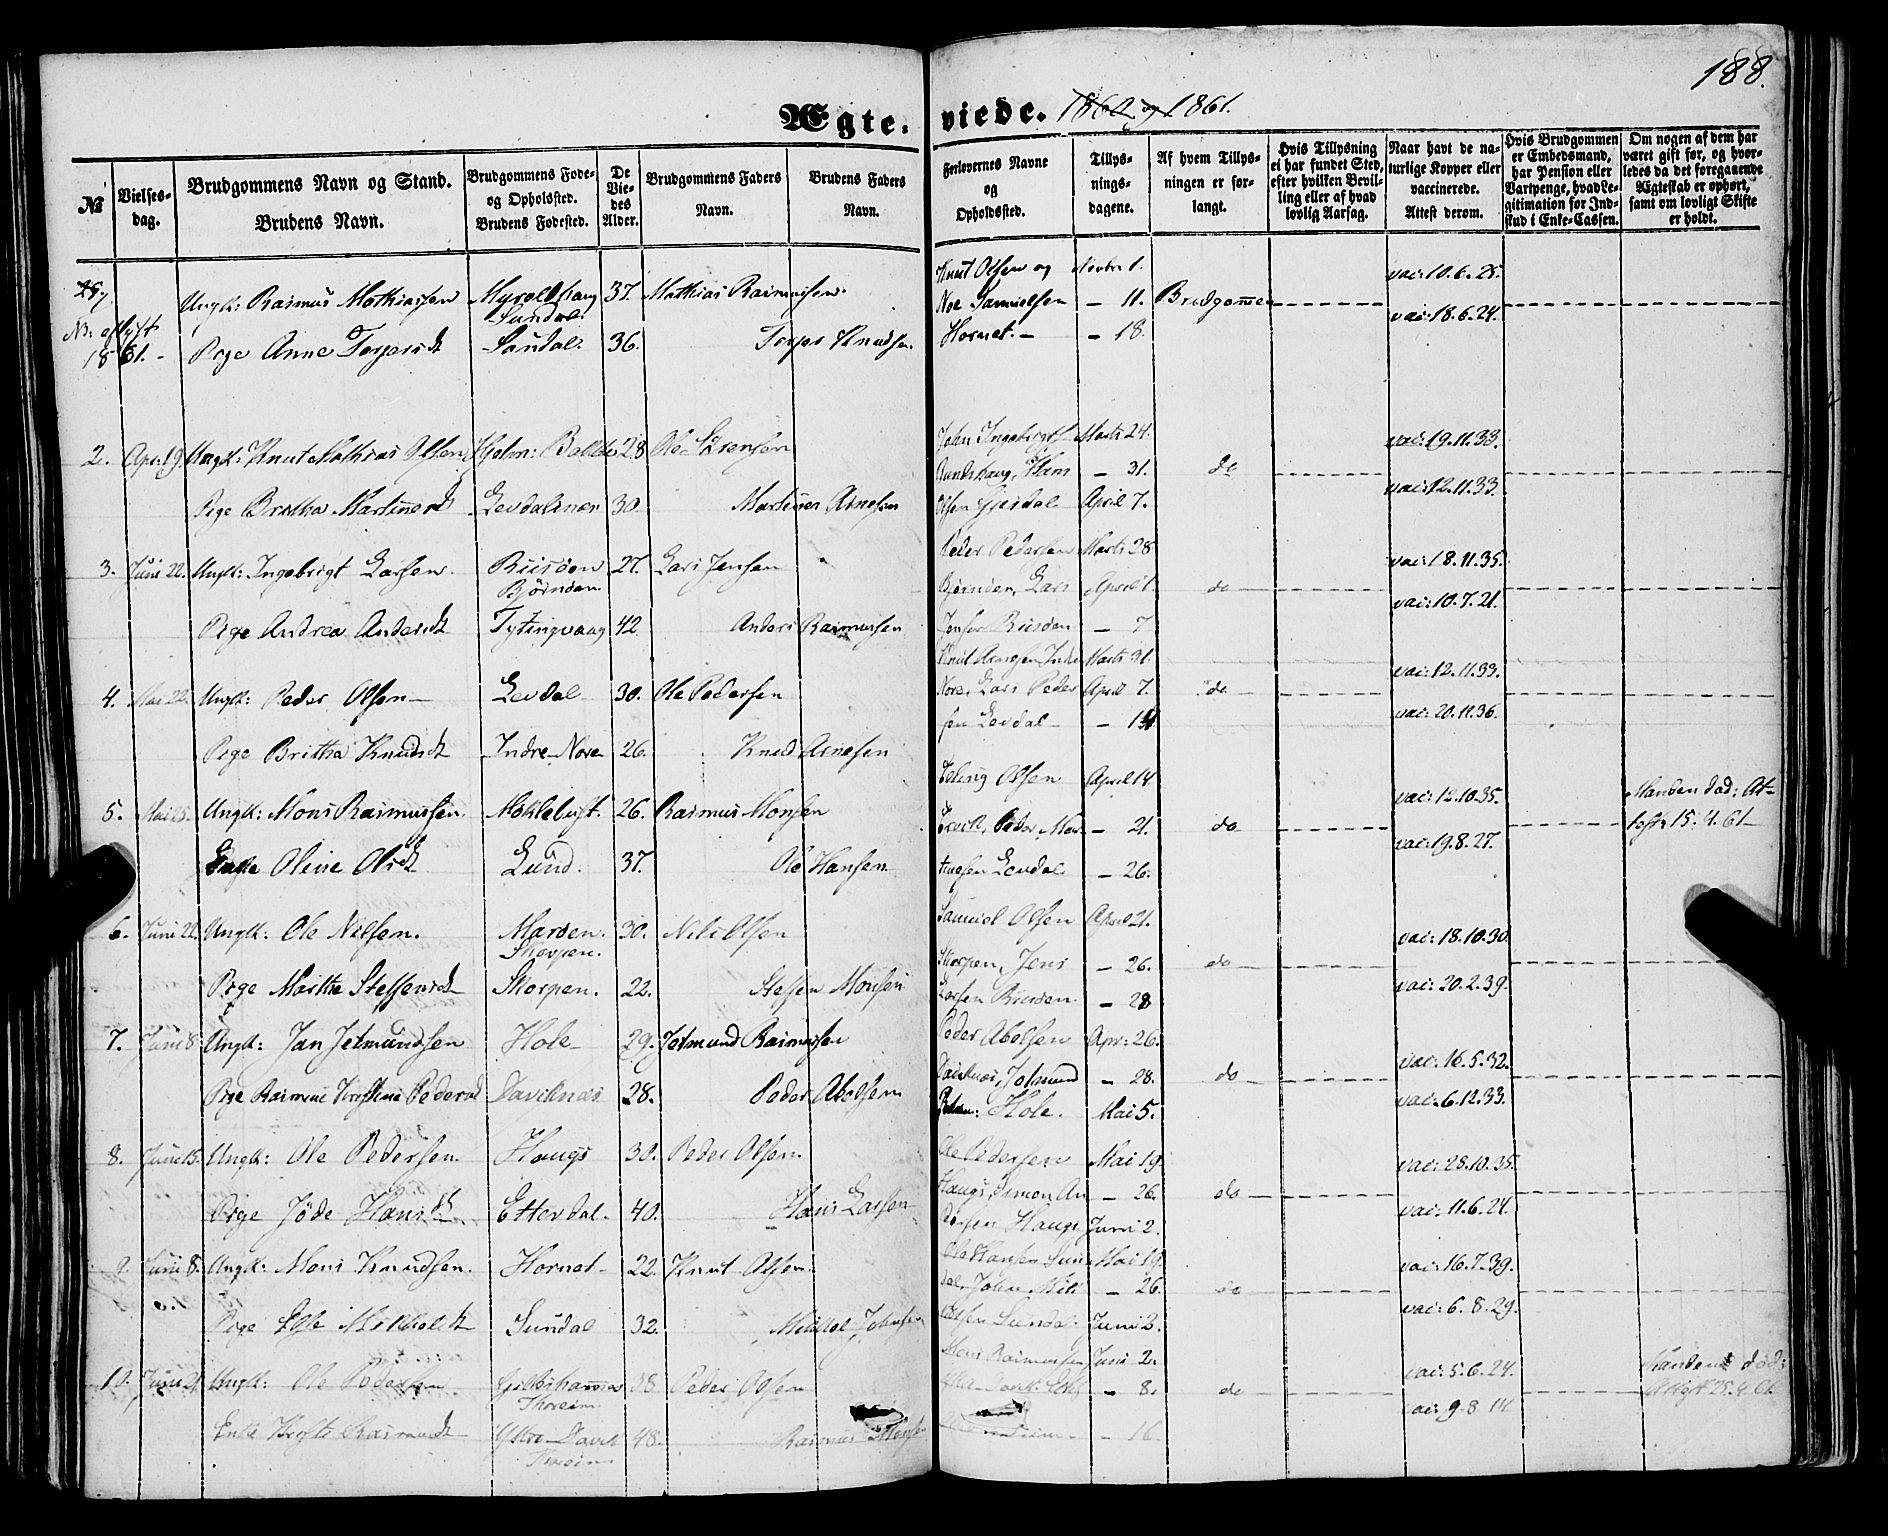 188.
Ægte-viede. 1860 og 1861.
№
Vielses-dag.
Brudgommens Navn og Stand.
Brudens Navn.
Brudgommens Føde- og Opholdsted.
Brudens Fødested.
De Vie-des Alder.
Brudgommens Faders Navn.
Brudens Faders Navn.
Forlovernes Navne og Opholdssted.
Tillys-nings-dagene.
Af hvem Tillys-ningen er for-langt.
Hvis Tillysning ei har fundet Sted, efter hvilken Bevil-ling eller af hvad lovlig Aarsag.
Naar havt de na-turlige Kopper eller vaccinerede. Attest derom.
Hvis Brudgommen er Embedsmand, har Pension eller Vartpenge, hvad Le-gitimation for Ind-skud i Enke-Cassen.
Om nogen af dem har været gift før, og hvor-ledes da det foregaaende Ægteskab er ophørt, samt om lovligt Skifte er holdt.
Ungk: Rasmus Mathiassen 37. Mathias Rasmussen. Knut Olsen og Novbr 1. vac: 10.6.25.
Sundal. Noe Samuelsen — 11. Brudgommen vac: 18.6.24.
1861. Pige Anne Torgersdt Sundal. 36. Torger Knudsen Hornet. — 18.
2. Apr: 19. Ungk: Knut Mathias Olsen 28 Ole Sørensen John Marts 24. vac: 19.11.33.
Hans — 31. do
Pige Britha Martinesdt 30. Martines Arnesen Olsen April 7. vac: 12.11.33.
3. Juni 22. Ungk: Ingebrigt Larsen. Riisøen Bjørnøen 27. Lars Jensen Peder Pedersen Marts 28 vac: 18.11.35.
Lars April 1. do
Pige Andrea Andersdt Tytingvaag 42 Anders Rasmussen Jensen Riisøen — 7 vac: 10.7.21.
4. Mai 22. Ungk: Peder Olsen Levdal 30. Ole Pedersen Knut Arnesen Indre Marts 31. vac: 12.11.33.
Nore, Lars Peder April 7. do
Pige Britha Knudsdt Indre-Nore 26. Knud Arnesen sen Levdal — 14 vac: 20.11.36.
5. Mai 25. Ungk: Mons Rasmussen. Møklebust. 26. Rasmus Monsen Olsen April 14 vac: 12.10.35. Manden død: At-
Peder Mor — 21. do 15.4.61
Enke Oline Olsdt Lund. 37. Ole Hansen tinesen Levdal — 26. vac: 19.8.27.
6. Juni 22. Ungk: Ole Nilsen. Marøen. Skorpen. 30. Nils Olsen Samuel Olsen April 21. vac: 18.10.30.
Skorpen, Jens — 26. do
Pige Marthe Steffensdt Skorpen. 22. Steffen Monsen Larsen Riisøen. — 28 vac: 20.2.39.
7. Juni 8 Ungk: Jan Jetmundsen Hole 29. Jetmund Rasmussen Peder Abelsen Apr: 26. vac: 16.5.32.
Daviknæs, Jetmund — 28. do
Pige Rasmine Pedersd Daviknæs 28. Peder Abelsen Hole. Mai 5. vac: 6.12.33.
8. Juni 15. Ungk: Ole Pedersen Haugs 30. Peder Olsen. Ole Pedersen Mai 19. vac: 28.10.35.
Haugs, Simon An — 26. do
Pige Jøde Hansdt Etterdal. 40. Hans Larsen dersen Haugs Juni 2. vac: 11.6.21.
9. Juni 8. Ungk: Mons Knudsen. Hornet 22. Knut Olsen. Ole Hansen Sun Mai 19. vac: 16.7.39.
dal, John Nils — 26. do
Pige Else Mikkelsdt Sundal 32. Mikkel Johnsen Sundal Juni 2. vac: 6.8.29.
10. Juni 21. Ungk: Ole Pedersen 38. Peder Olsen Mons Rasmussen Juni 2. vac: 5.6.24. Manden død:
— 8. do 25.4.61
Enke Rasmusdt Ytre Davik 48. Rasmus Monsen — 16. vac: 9.8.14